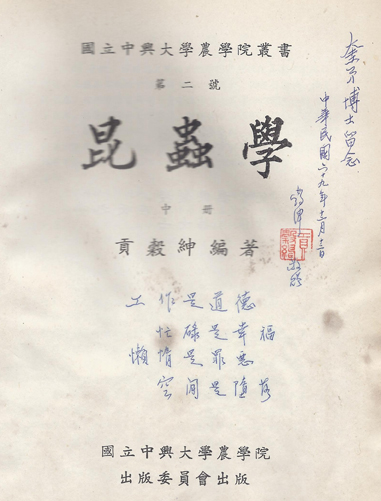 國立中興大學農學院叢書
第二號
昆蟲學
中冊
貢穀紳編著
博士留念
中華民國六十九年
工作是道德
忙碌是幸福
懶惰是罪惡
空閒是墮落
國立中興大學農學院
出版委員會出版